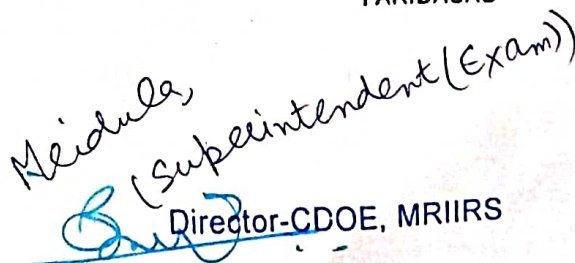 FARIDABAD
Mridula,
(Superintendent (Exam))
Director-CDOE, MRIIRS